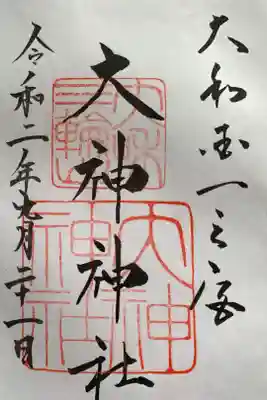 大和国一之宮
大神神社
令和二年九月二十一日
三輪
大神
神社